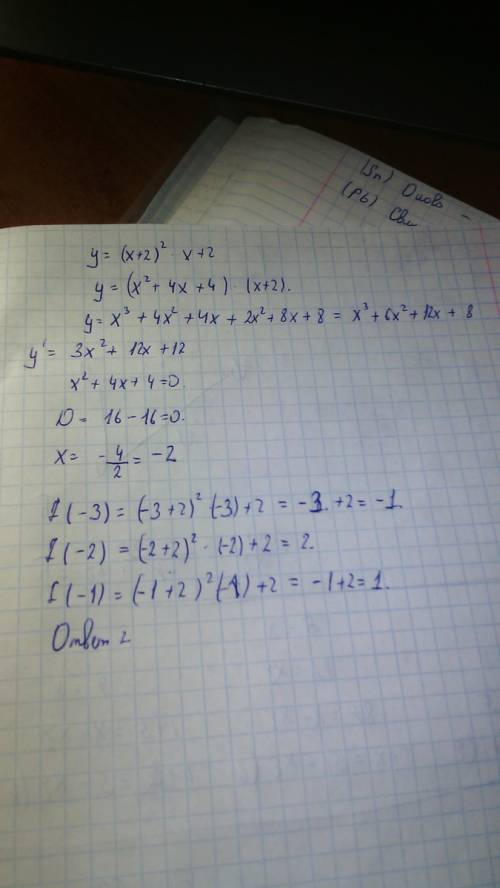 (Sn) Олово -
(Pb) Сви
y = (x+2)² · x+2
y = (x² + 4x + 4) · (x+2).
y = x³ + 4x² + 4x + 2x² + 8x + 8 = x³ + 6x² + 12x + 8
y' = 3x² + 12x + 12
x² + 4x + 4 = 0.
D = 16 - 16 = 0.
x = -4/2 = -2
f(-3) = (-3+2)² (-3)+2 = -3. +2 = -1.
f(-2) = (-2+2)² · (-2)+2 = 2.
f(-1) = (-1+2)² (-1)+2 = -1+2 = 1.
Ответ 2